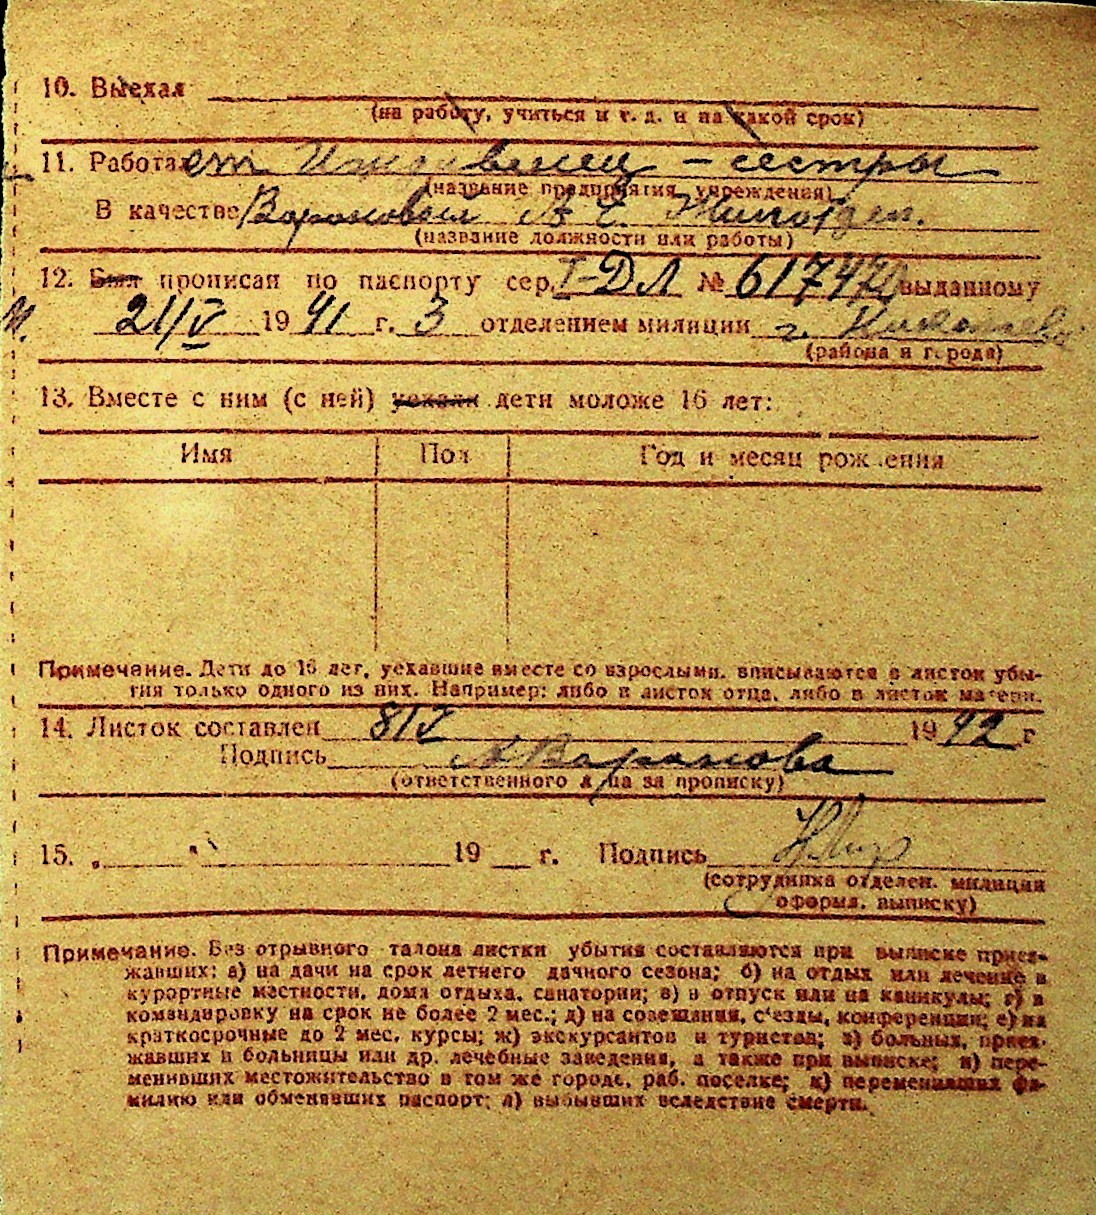 10. Выехал
(на работу, учиться и т. д. и на какой срок)
11. Работал ет Иждивенец - сестры
(название предприятия, учреждения)
В качестве Вороновой А. С.
(название должности или работы)
12. Был прописан по паспорту сер. I-ДЛ № 617470 выданному
21/V 1941 г. 3 отделением милиции г. Николаева
(района и города)
13. Вместе с ним (с ней) уехали дети моложе 16 лет:
Имя Пол Год и месяц рождения
Примечание. Дети до 16 лет, уехавшие вместе со взрослыми, вписываются в листок убы-
тия только одного из них. Например: либо в листок отца, либо в листок матери.
14. Листок составлен 8/V 1942 г
Подпись А Воронова
(ответственного лица за прописку)
15. „ " 19 г. Подпись
(сотрудника отделен. милиции
оформл. выписку)
Примечание. Без отрывного талона листки убытия составляются при выписке приез-
жавших: а) на дачи на срок летнего дачного сезона; б) на отдых или лечение в
курортные местности, дома отдыха, санатории; в) в отпуск или на каникулы; г) в
командировку на срок не более 2 мес.; д) на совещания, съезды, конференции; е) на
краткосрочные до 2 мес. курсы; ж) экскурсантов и туристов; з) больных, приез-
жавших в больницы или др. лечебные заведения, а также при выписке; и) пере-
менивших местожительство в том же городе, раб. поселке; к) переменивших фа-
милию или обменявших паспорт; л) выбывших вследствие смерти.